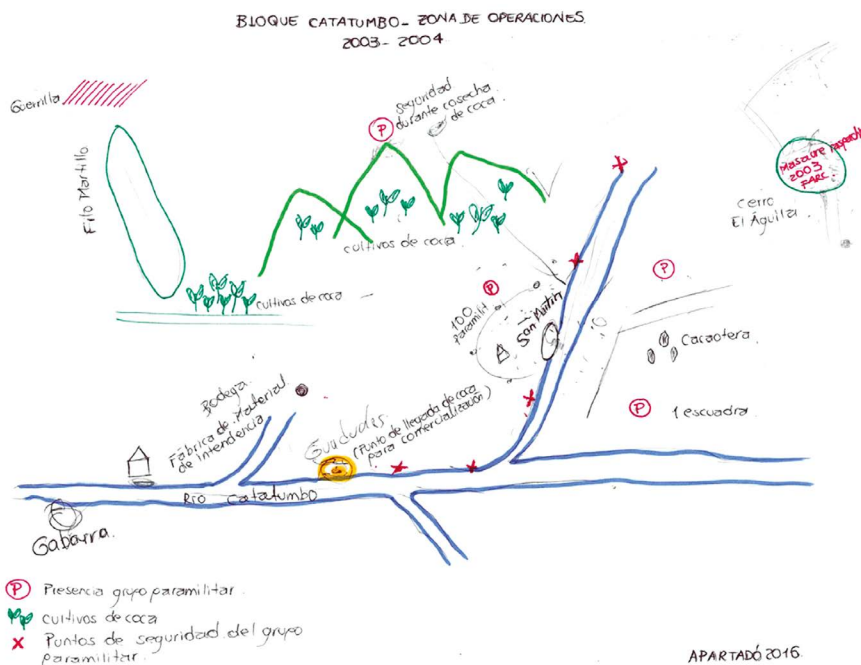 BLOQUE CATATUMBO- ZONA DE OPERACIONES.
2003-2004
Guerrilla
Filo Martillo
P
seguridad
durante cosecha
de coca.
cultivos de coca.
cultivos de coca
Masacre
2003
FARC
cerro
El Águila
P
100
paramilit
San Martín
P
Cacaotera.
P
1 escuadra.
Bodega.
Fábrica de Material
de intendencia
Guaduas.
(Punto de llegada de coca
para comercialización)
Río Catatumbo
Gabarra.
P Presencia grupo paramilitar.
cultivos de coca
x Puntos de seguridad del grupo
paramilitar.
APARTADÓ 2016.